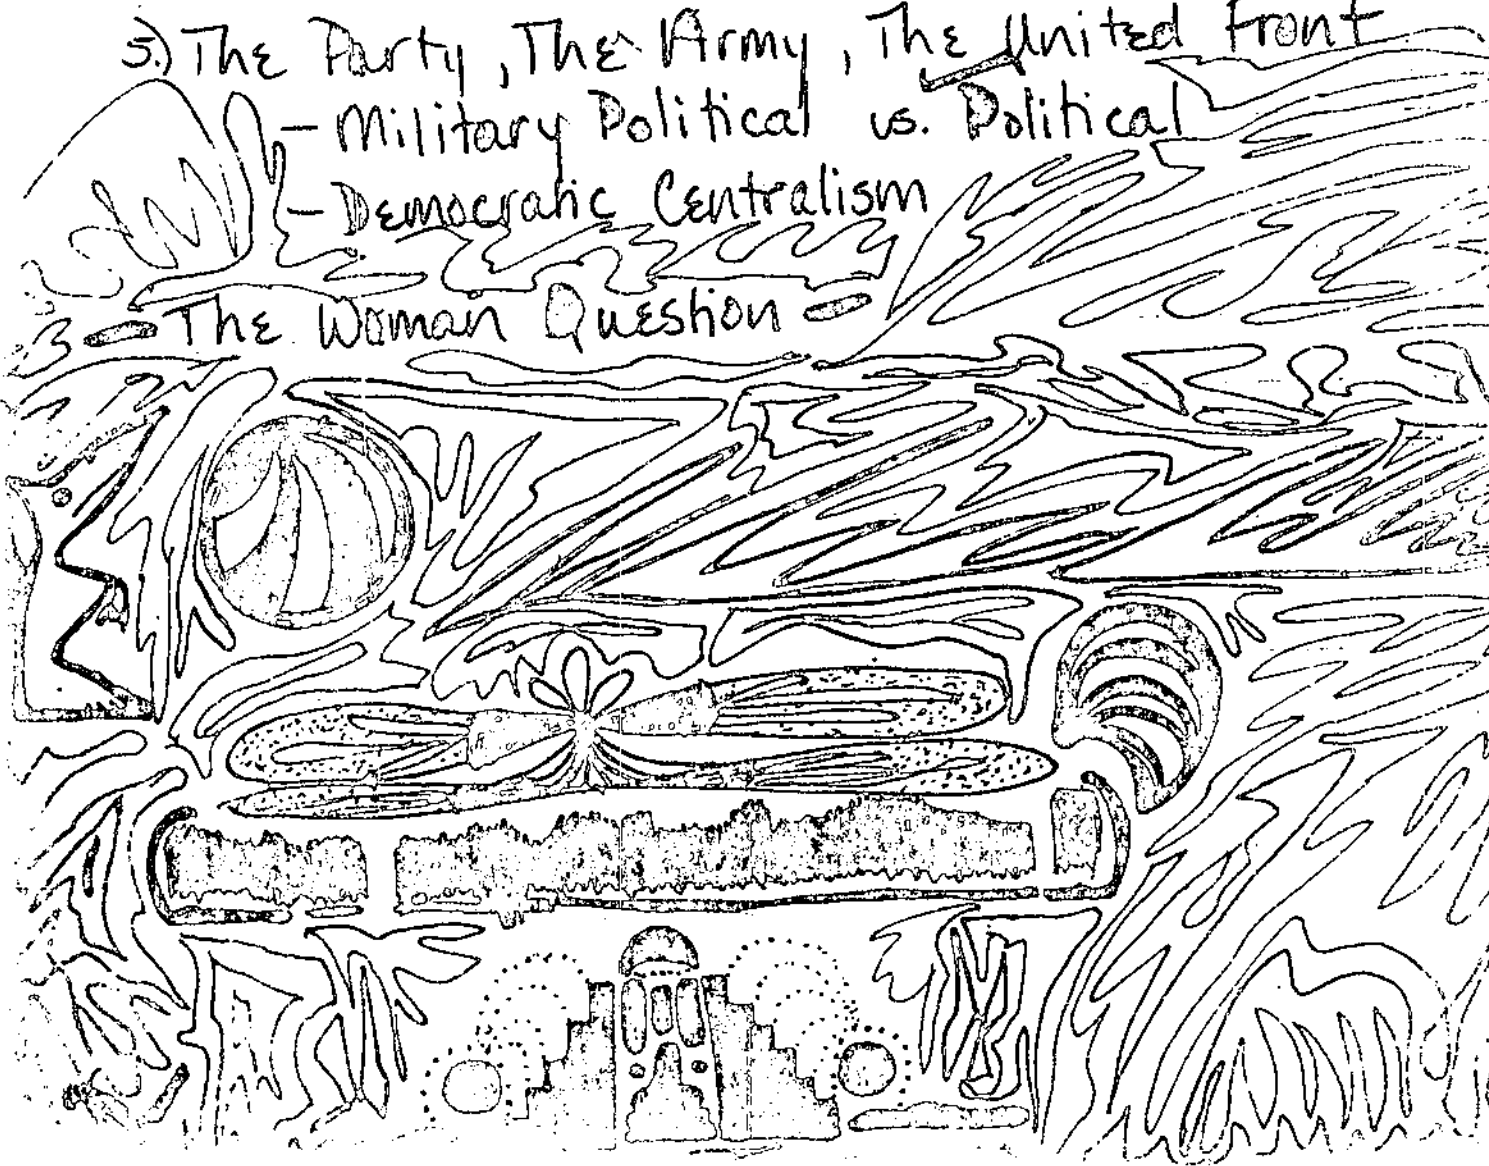 5.) The Party, The Army, The United Front
- Military Political vs. Political
- Democratic Centralism
- The Woman Question -